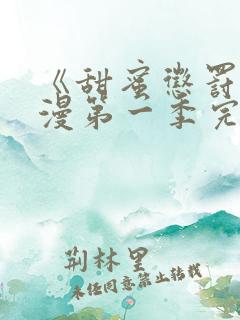 《甜蜜惩罚
漫第一季完
荆林里
未经同意禁止转载